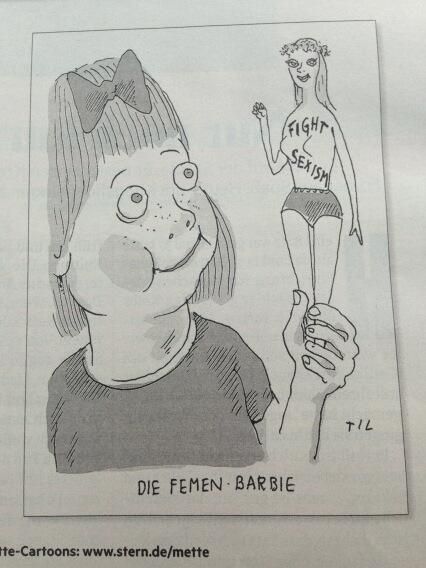 FIGHT
SEXISM
TIL
DIE FEMEN-BARBIE
tte-Cartoons: www.stern.de/mette